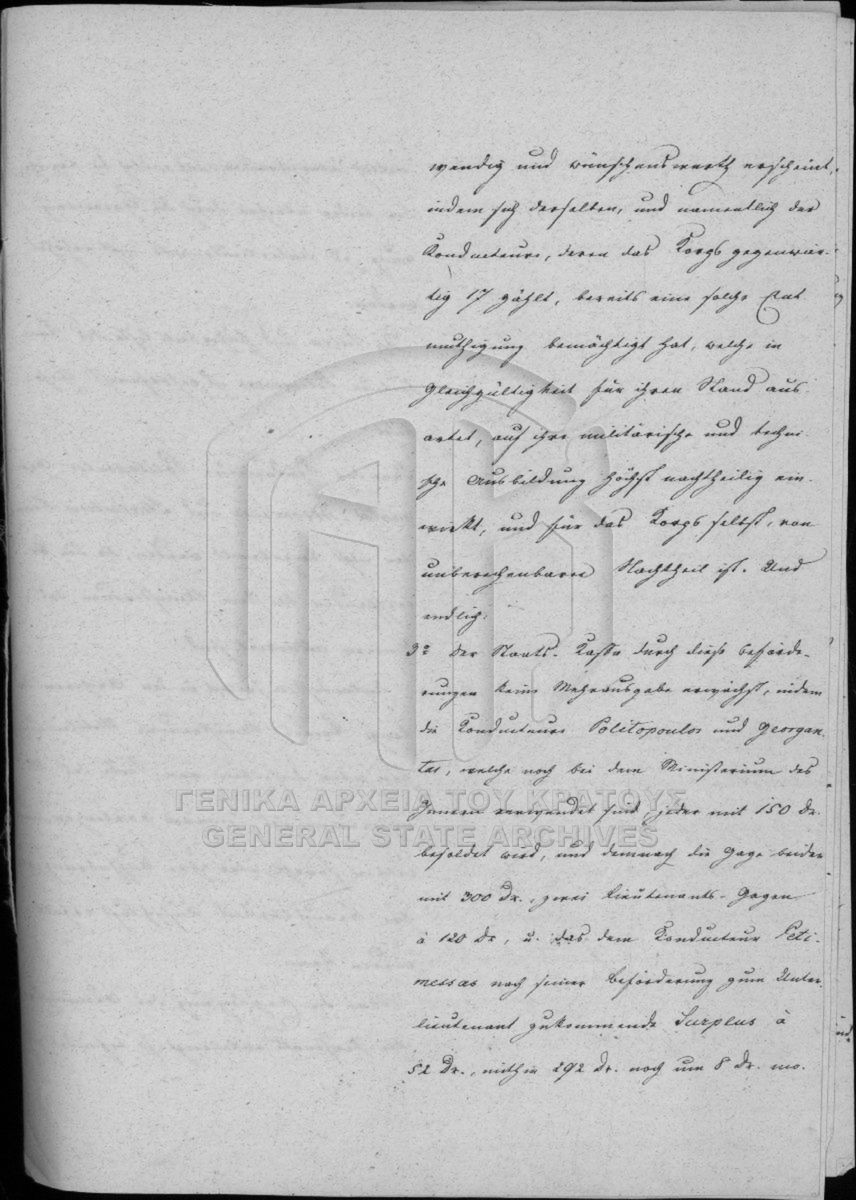 wendig und wünschenswerth erscheint,
indem sich derselben, und namentlich der
Konducteure, deren das Korps gegenwär-
tig 17 zählt, bereits eine solche Ent
muthigung bemächtigt hat, welche in
Gleichgültigkeit für ihren Stand aus-
artet, auf ihre militärische und techni-
sche Ausbildung höchst nachtheilig ein-
wirkt, und für das Korps selbst, von
unberechenbarem Nachtheil ist. Und
endlich:
3º der Staats-Kasse durch diese Beförde-
rungen keine Mehrausgabe erwächst, indem
die Konducteure Politopoulos und Georgan-
tas, welche noch bei dem Ministerium des
Innern verwendet sind jeder mit 150 Dr.
besoldet wird, und demnach die Gage beider
mit 300 Dr., zwei Lieutenants-Gagen
à 120 Dr., u. das dem Konducteur Peti-
messas nach seiner Beförderung zum Unter-
lieutenant zukommende Surplus à
52 Dr., mithin 292 Dr. noch um 8 Dr. mo-
ΓΕΝΙΚΑ ΑΡΧΕΙΑ ΤΟΥ ΚΡΑΤΟΥΣ
GENERAL STATE ARCHIVES